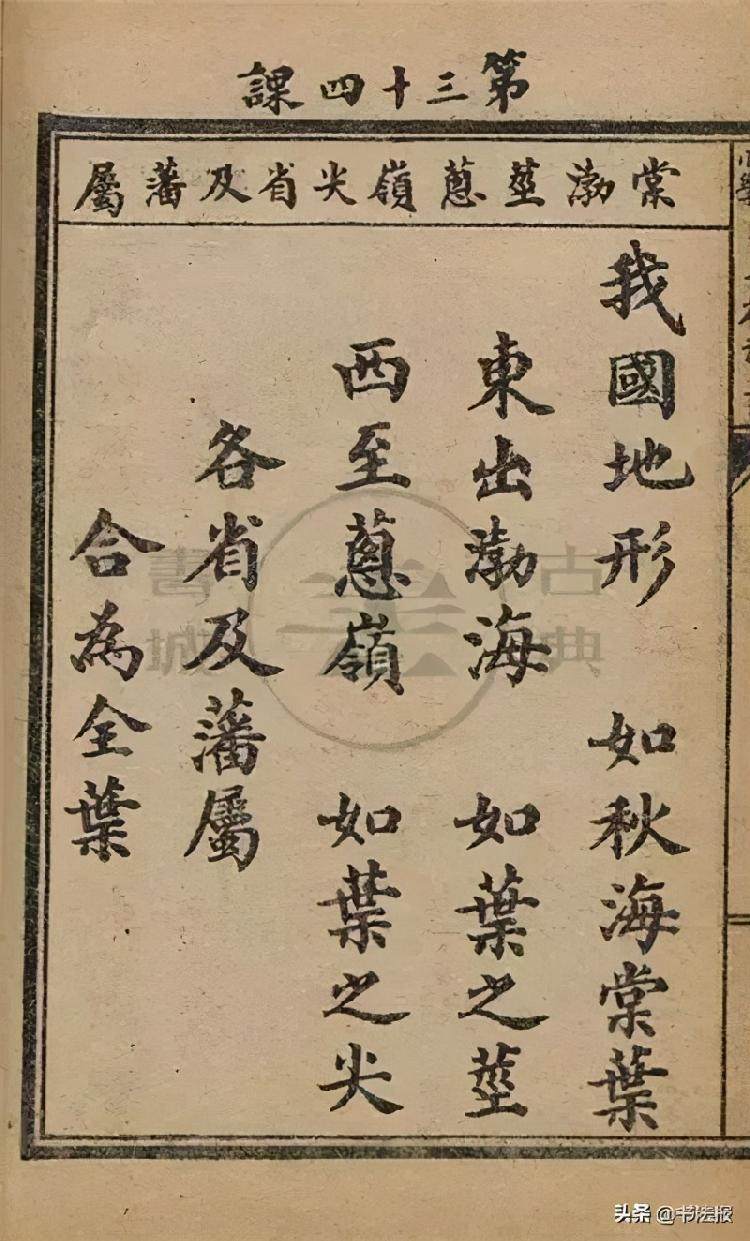 第三十四課
棠渤莖蔥嶺尖省及藩屬
我國地形 如秋海棠葉
東出渤海 如葉之莖
西至蔥嶺 如葉之尖
各省及藩屬
合為全葉
古典書城
头条 @书法报